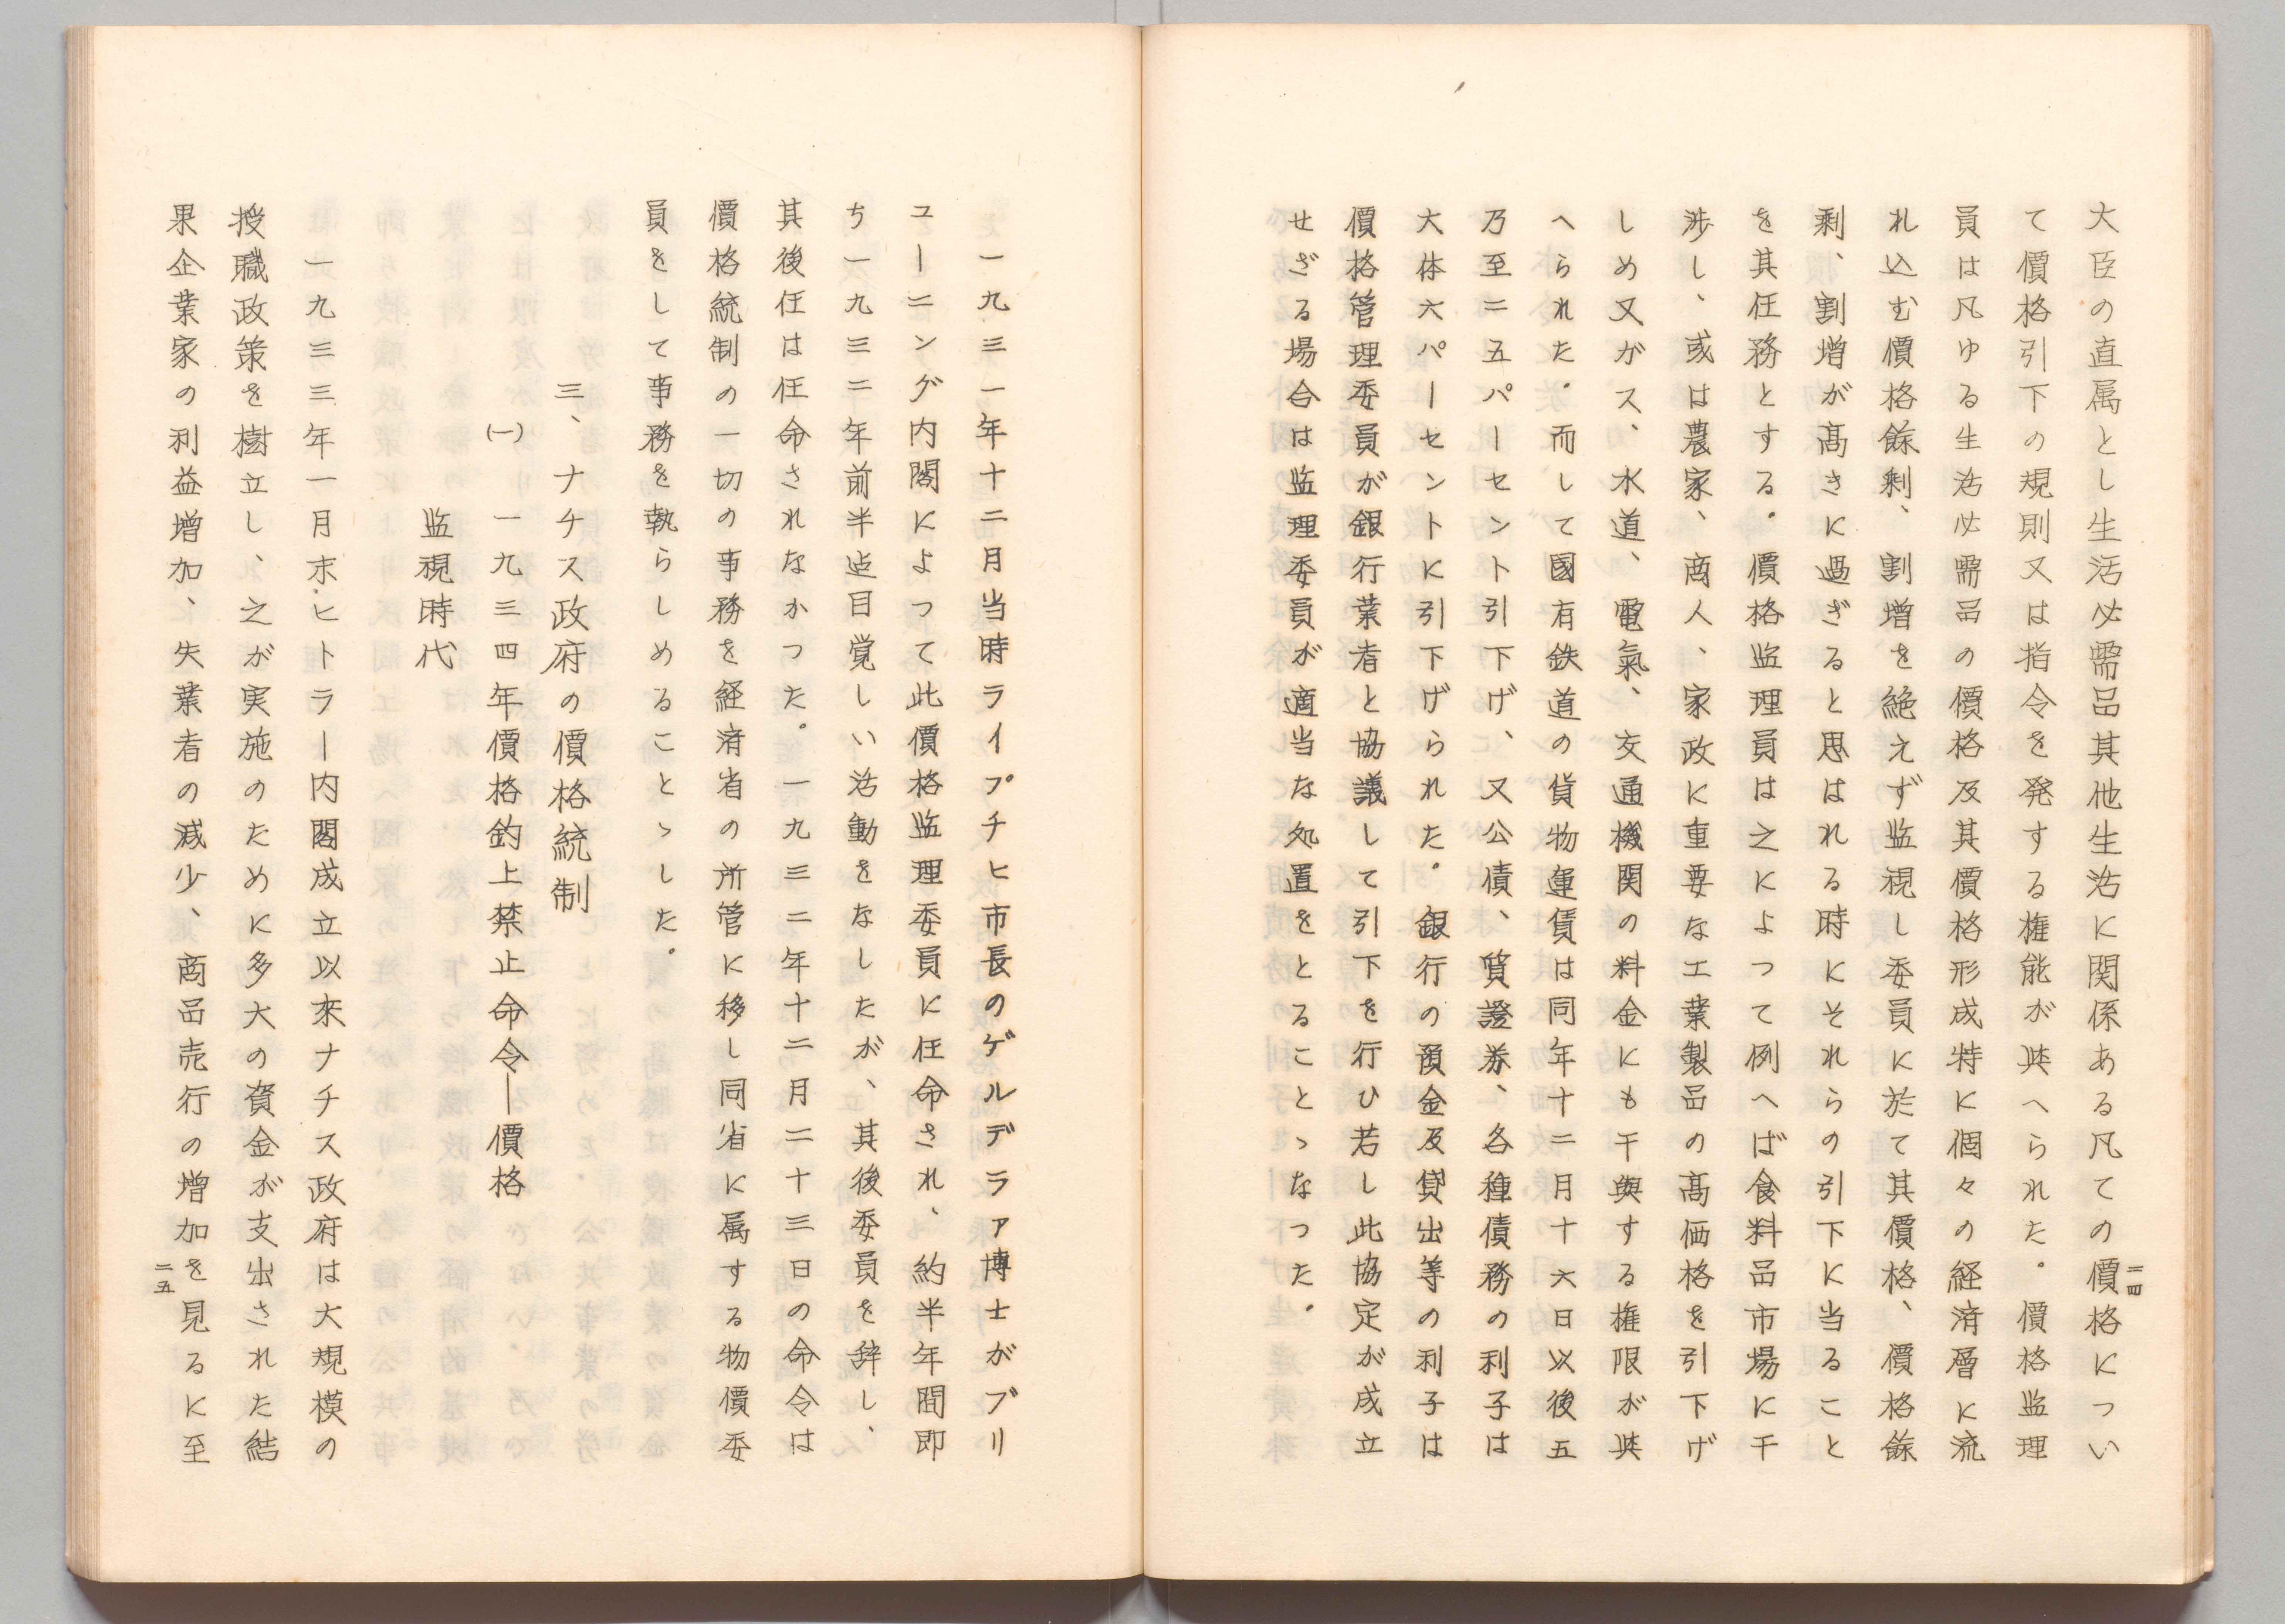 大臣の直属とし生活必需品其他生活に関係ある凡ての價格につい
て價格引下の規則又は指令を発する権能が與へられた。價格監理
員は凡ゆる生活必需品の價格及其價格形成特に個々の経済層に流
れ込む價格餘剰、割増を絶えず監視し委員に於て其價格、價格餘
剰、割増が高きに過ぎると思はれる時にそれらの引下に当ること
を其任務とする。價格監理員は之によつて例へば食料品市場に干
渉し、或は農家、商人、家政に重要な工業製品の高価格を引下げ
しめ又ガス、水道、電氣、交通機関の料金にも干與する権限が與
へられた。而して國有鉄道の貨物運賃は同年十二月十六日以後五
乃至二五パーセント引下げ、又公債、質證券、各種債務の利子は
大体六パーセントに引下げられた。銀行の預金及貸出等の利子は
價格管理委員が銀行業者と協議して引下を行ひ若し此協定が成立
せざる場合は監理委員が適当な処置をとることゝなつた。
二四
一九三一年十二月当時ライプチヒ市長のゲルデラァ博士がブリ
ユーニング内閣によつて此價格監理委員に任命され、約半年間即
ち一九三二年前半迄目覚しい活動をなしたが、其後委員を辞し、
其後任は任命されなかつた。一九三二年十二月二十三日の命令は
價格統制の一切の事務を経済省の所管に移し同省に属する物價委
員をして事務を執らしめることゝした。
三、ナチス政府の價格統制
(一)一九三四年價格釣上禁止命令―價格
監視時代
一九三三年一月末ヒトラー内閣成立以來ナチス政府は大規模の
授職政策を樹立し、之が実施のために多大の資金が支出された結
果企業家の利益増加、失業者の減少、商品売行の増加を見るに至
二五